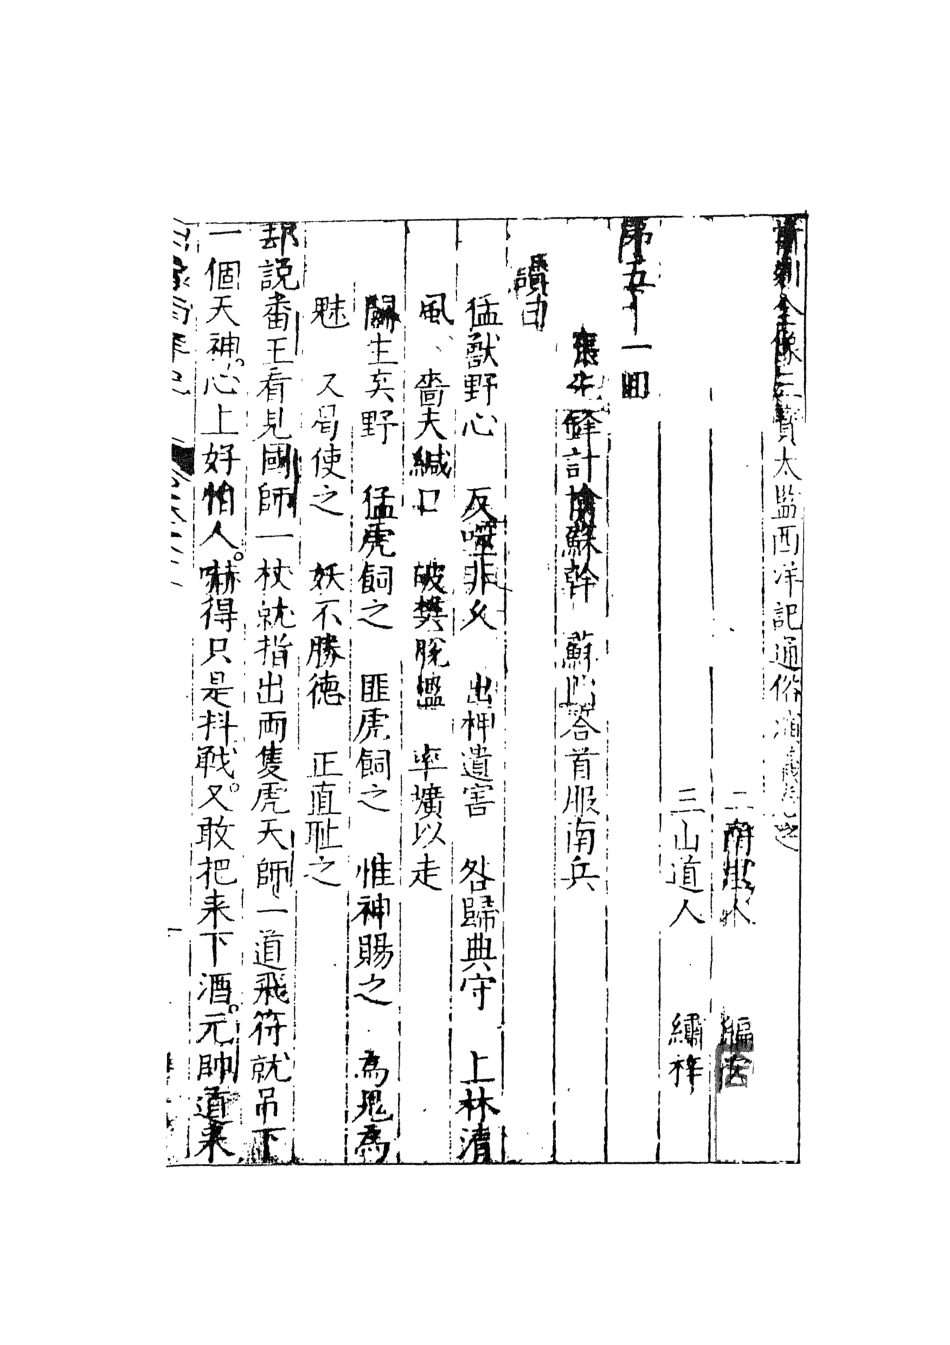 新刻全像三寶太監西洋記通俗演義卷之
二南里人　編次
三山道人　繡梓
第五十一回
張先鋒計擒蘇幹　蘇門答首服南兵
讚曰
猛獸野心　反噬非久　出柙遺害　咎歸典守　上林清
風、嗇夫緘口　破樊脫檻　率壙以走
鬬生矣野　猛虎飼之　匪虎飼之　惟神賜之　為鬼為
魅　又曷使之　妖不勝德　正直耻之
却說番王看見國師一杖就指出兩隻虎天師一道飛符就吊下
一個天神。心上好怕人。嚇得只是抖戰。又敢把来下酒。元帥道来